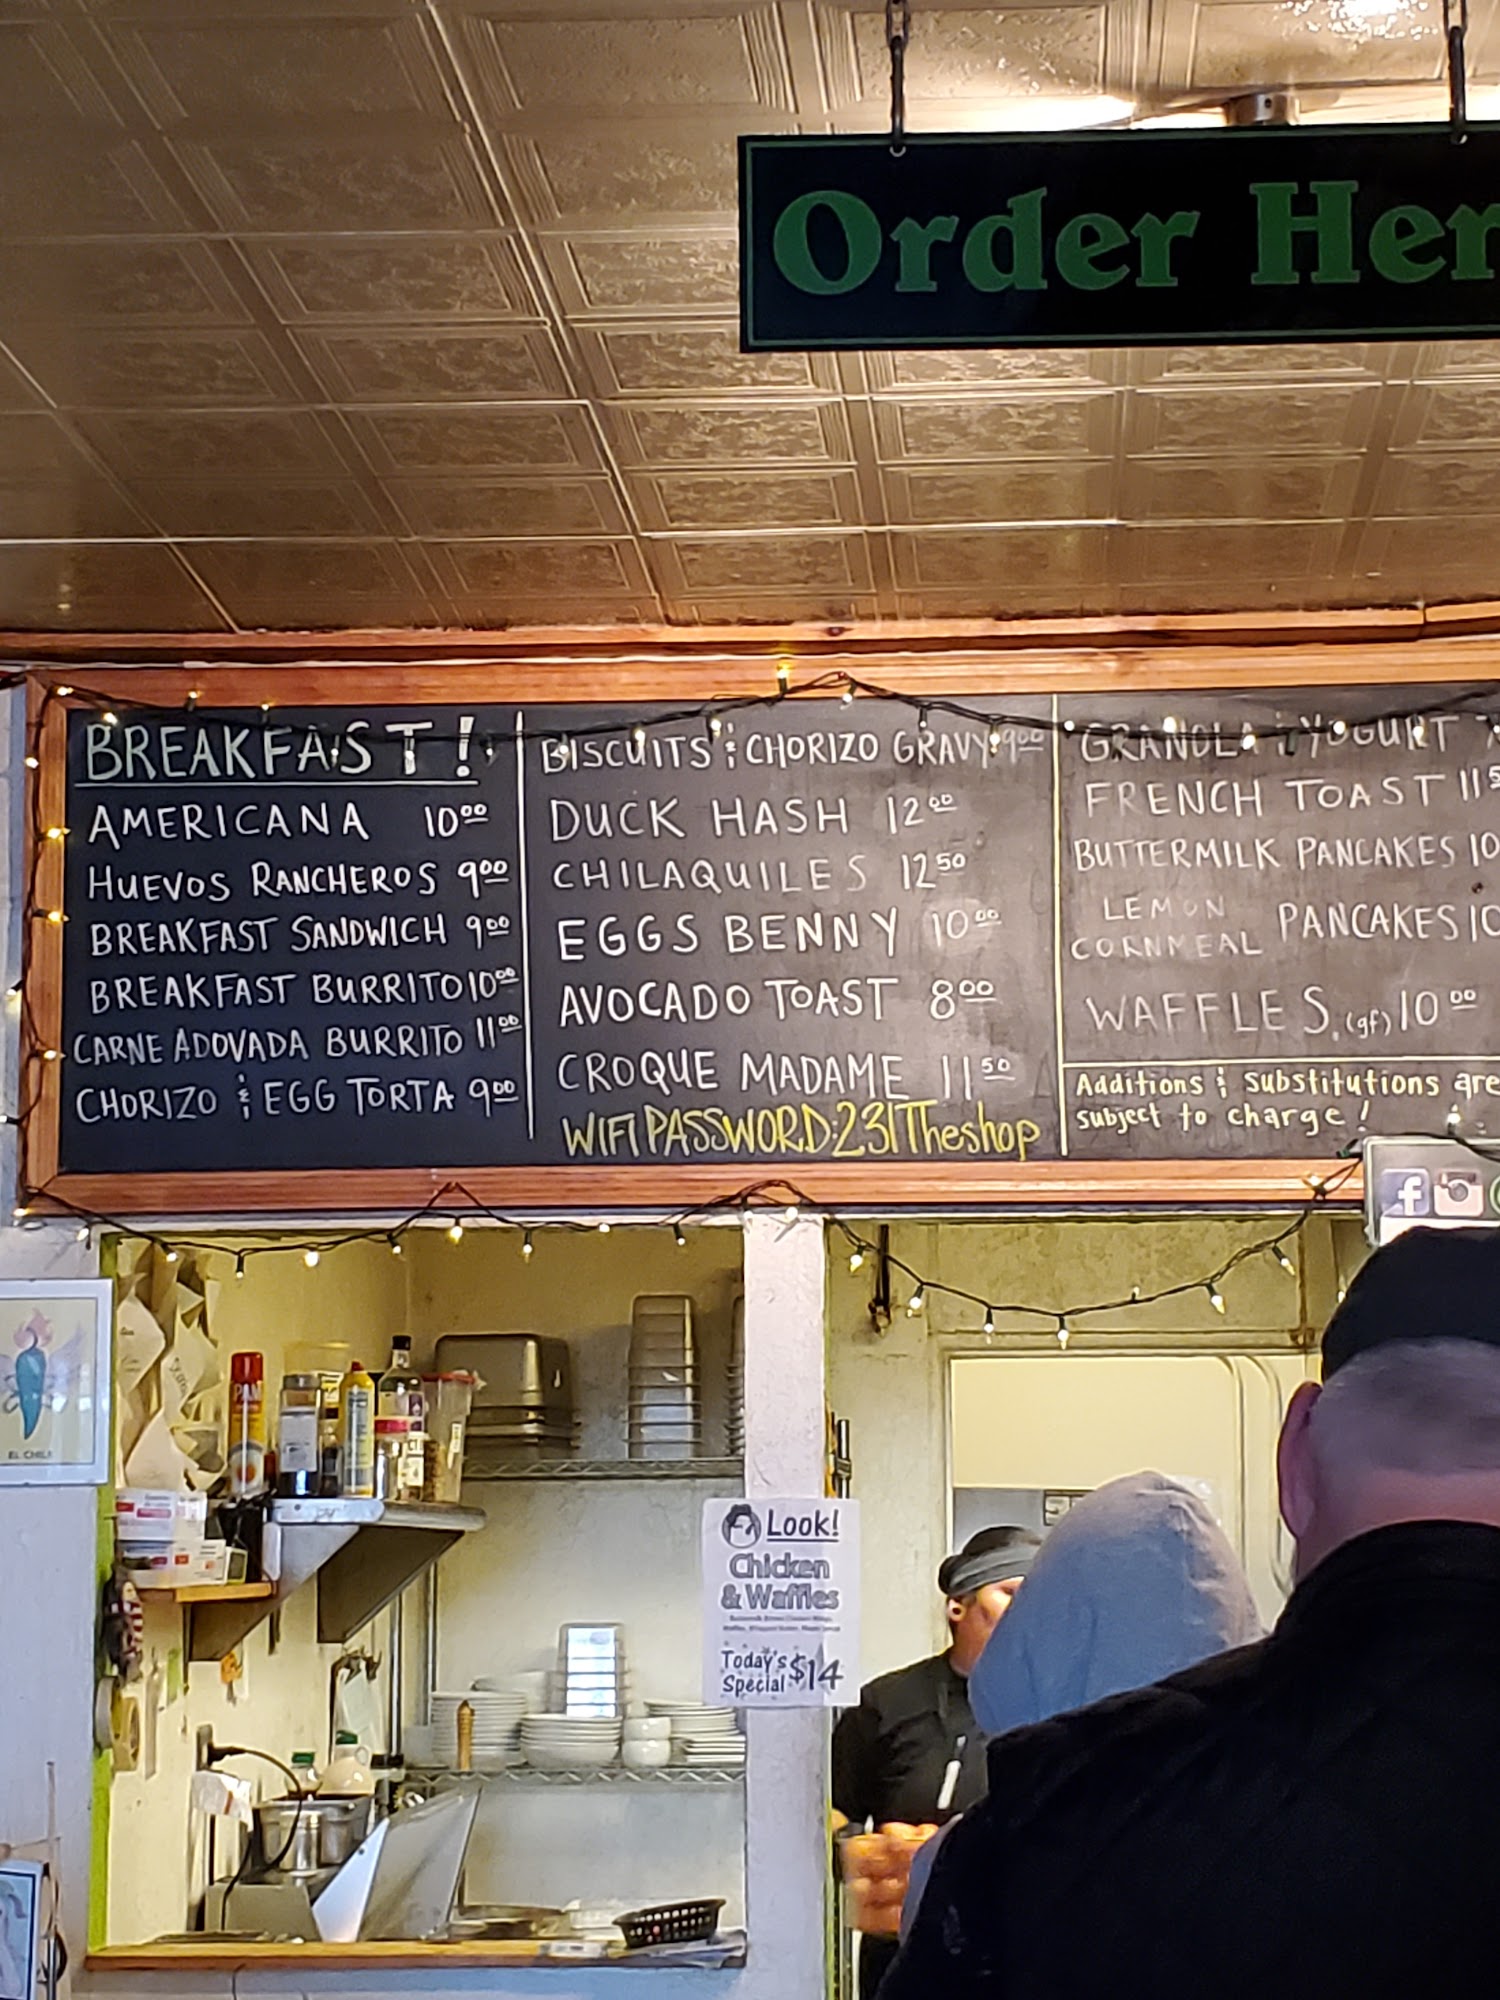 Order Her
BREAKFAST!
AMERICANA 10⁰⁰
HUEVOS RANCHEROS 9⁰⁰
BREAKFAST SANDWICH 9⁰⁰
BREAKFAST BURRITO 10⁰⁰
CARNE ADOVADA BURRITO 11⁰⁰
CHORIZO & EGG TORTA 9⁰⁰
BISCUITS & CHORIZO GRAVY 9⁰⁰
DUCK HASH 12⁰⁰
CHILAQUILES 12⁵⁰
EGGS BENNY 10⁰⁰
AVOCADO TOAST 8⁰⁰
CROQUE MADAME 11⁵⁰
WIFI PASSWORD: 231Theshop
GRANOLA & YOGURT
FRENCH TOAST 11⁵
BUTTERMILK PANCAKES 10
LEMON CORNMEAL PANCAKES 10
WAFFLES (gf) 10⁰⁰
Additions & substitutions are
subject to charge!
EL CHILE
PAM
Look!
Chicken
& Waffles
Today's
Special $14